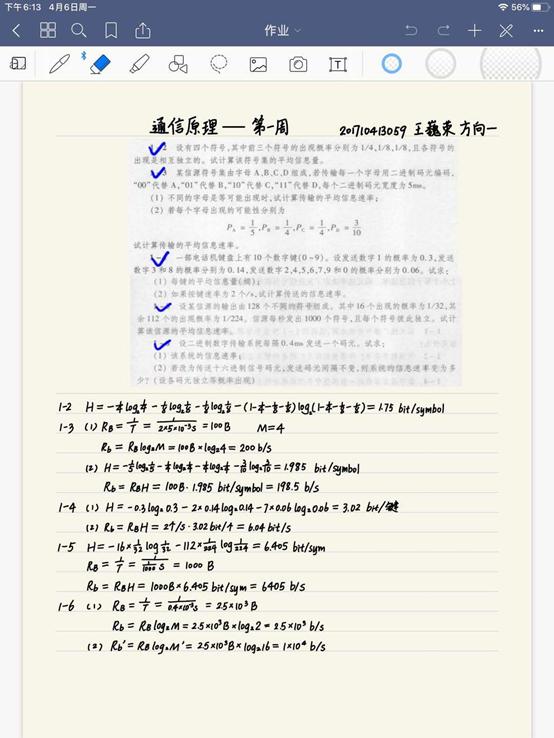 下午6:13 4月6日周一
56%
作业
通信原理 — 第一周 201710413059 王巍荣 方向一
设有四个符号,其中前三个符号的出现概率分别为 1/4,1/8,1/8,且各符号的
出现是相互独立的。试计算该符号集的平均信息量。
某信源符号集由字母 A,B,C,D 组成,若传输每一个字母用二进制码元编码,
“00”代替 A,“01”代替 B,“10”代替 C,“11”代替 D,每个二进制码元宽度为 5ms。
(1) 不同的字母是等可能出现时,试计算传输的平均信息速率;
(2) 若每个字母出现的可能性分别为
P_A = 1/5, P_B = 1/4, P_C = 1/4, P_D = 3/10
试计算传输的平均信息速率。
一部电话机键盘上有 10 个数字键(0~9)。设发送数字 1 的概率为 0.3,发送
数字 3 和 8 的概率分别为 0.14,发送数字 2,4,5,6,7,9 和 0 的概率分别为 0.06。试求:
(1) 每键的平均信息量(熵);
(2) 如果按键速率为 2 个/s,试计算传送的信息速率。
设某信源的输出由 128 个不同的符号组成。其中 16 个出现的概率为 1/32,其
余 112 个的出现概率为 1/224。信源每秒发出 1000 个符号,且每个符号彼此独立。试计
算该信源的平均信息速率。
设二进制数字传输系统每隔 0.4ms 发送一个码元。试求:
(1) 该系统的信息速率;
(2) 若改为传送十六进制信号码元,发送码元间隔不变,则系统的信息速率变为多
少?(设各码元独立等概率出现)
1-2 H = -1/4 log₂ 1/4 - 1/8 log₂ 1/8 - 1/8 log₂ 1/8 - (1-1/4-1/8-1/8) log₂ (1-1/4-1/8-1/8) = 1.75 bit/symbol
1-3 (1) R_B = 1/T = 1/(2×5×10⁻³s) = 100B M=4
R_b = R_B log₂M = 100B × log₂4 = 200 b/s
(2) H = -1/5 log₂ 1/5 - 1/4 log₂ 1/4 - 1/4 log₂ 1/4 - 3/10 log₂ 3/10 = 1.985 bit/symbol
R_b = R_B H = 100B · 1.985 bit/symbol = 198.5 b/s
1-4 (1) H = -0.3 log₂ 0.3 - 2×0.14 log₂ 0.14 - 7×0.06 log₂ 0.06 = 3.02 bit/键
(2) R_b = R_B H = 2个/s · 3.02 bit/个 = 6.04 bit/s
1-5 H = -16× 1/32 log 1/32 - 112× 1/224 log 1/224 = 6.405 bit/sym
R_B = 1/T = 1/(1/1000 s) = 1000 B
R_b = R_B H = 1000B × 6.405 bit/sym = 6405 b/s
1-6 (1) R_B = 1/T = 1/(0.4×10⁻³s) = 2.5×10³ B
R_b = R_B log₂M = 2.5×10³B × log₂2 = 2.5×10³ b/s
(2) R_b' = R_B log₂M' = 2.5×10³B × log₂16 = 1×10⁴ b/s